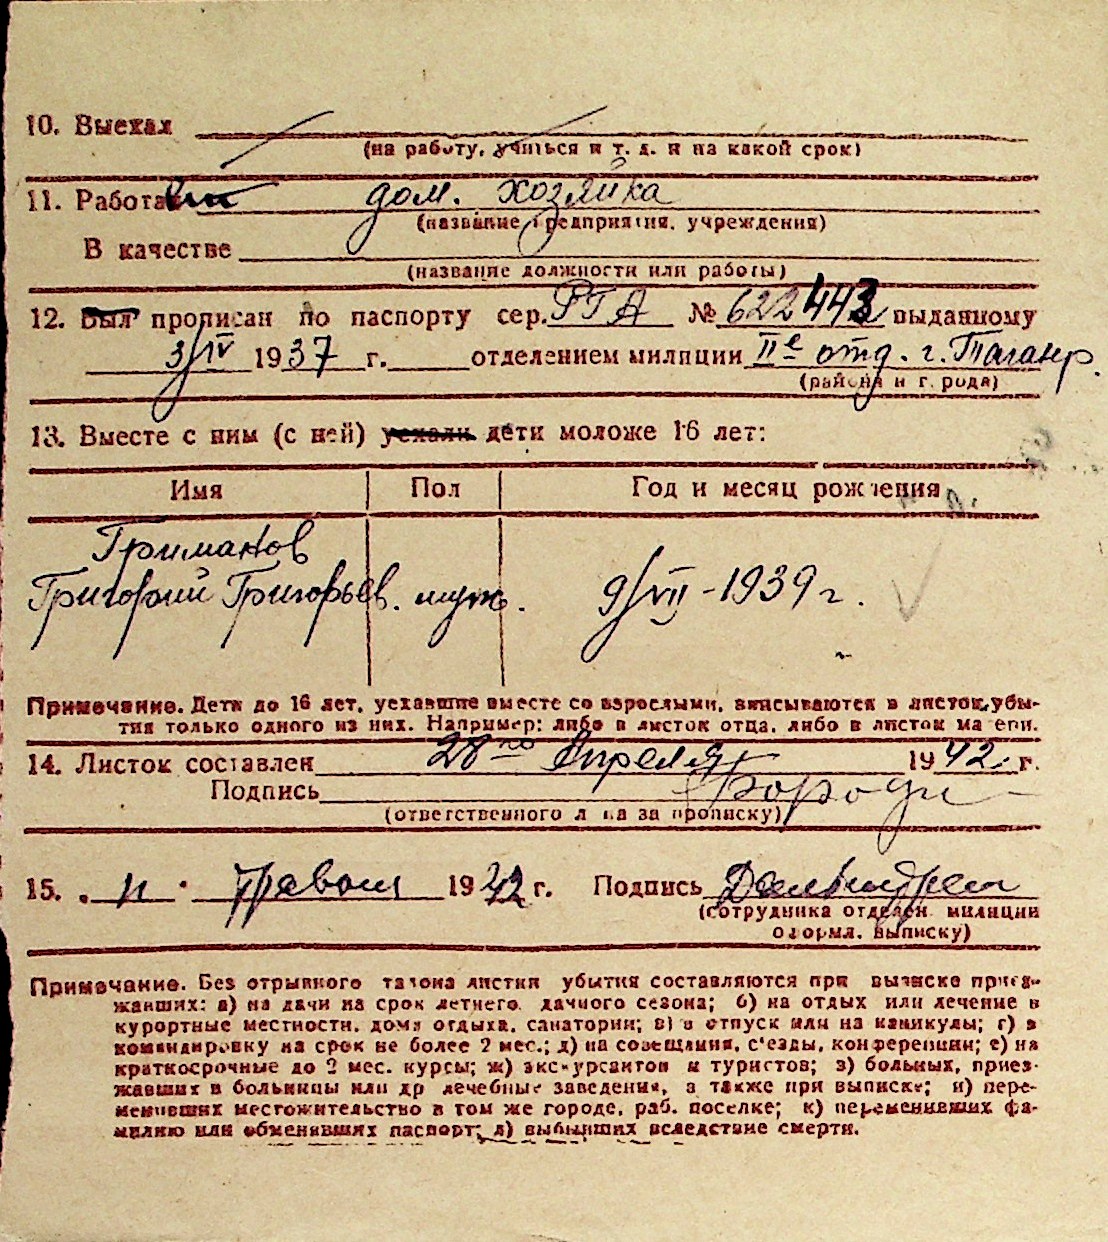 10. Выехал
(на работу, учиться и т. д. и на какой срок)
11. Работа дом. хозяйка
(название предприятия, учреждения)
В качестве
(название должности или работы)
12. Был прописан по паспорту сер. РГА № 622443 выданному
3/IV 1937 г. отделением милиции IIе отд. г. Таганр.
(района и города)
13. Вместе с ним (с ней) уехали дети моложе 16 лет:
Имя Пол Год и месяц рождения
Гриманов
Григорий Григорьев. муж. 9/VII-1939 г.
Примечание. Дети до 16 лет, уехавшие вместе со взрослыми, вписываются в листок убы-
тия только одного из них. Например: либо в листок отца, либо в листок матери.
14. Листок составлен 28го Апреля 1942 г.
Подпись
(ответственного лица за прописку)
15. 1942 г. Подпись
(сотрудника отделен. милиции
оформл. выписку)
Примечание. Без отрывного талона листки убытия составляются при выписке приез-
жавших: а) на дачи на срок летнего дачного сезона; б) на отдых или лечение в
курортные местности, дома отдыха, санатории; в) в отпуск или на каникулы; г) в
командировку на срок не более 2 мес.; д) на совещания, с'езды, конференции; е) на
краткосрочные до 2 мес. курсы; ж) экскурсантов и туристов; з) больных, приез-
жавших в больницы или др лечебные заведения, а также при выписке; и) пере-
менивших местожительство в том же городе, раб. поселке; к) переменивших фа-
милию или обменивших паспорт; л) выбывших вследствие смерти.